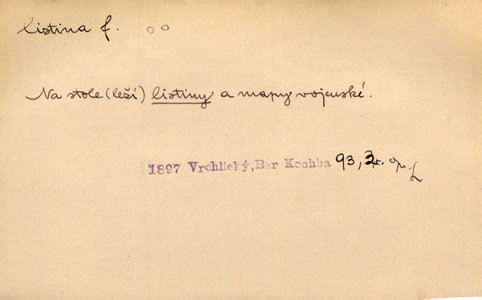 listina f.
Na stole (leží) listiny a mapy vojenské.
1897 Vrchlický, Bar Kochba 93,